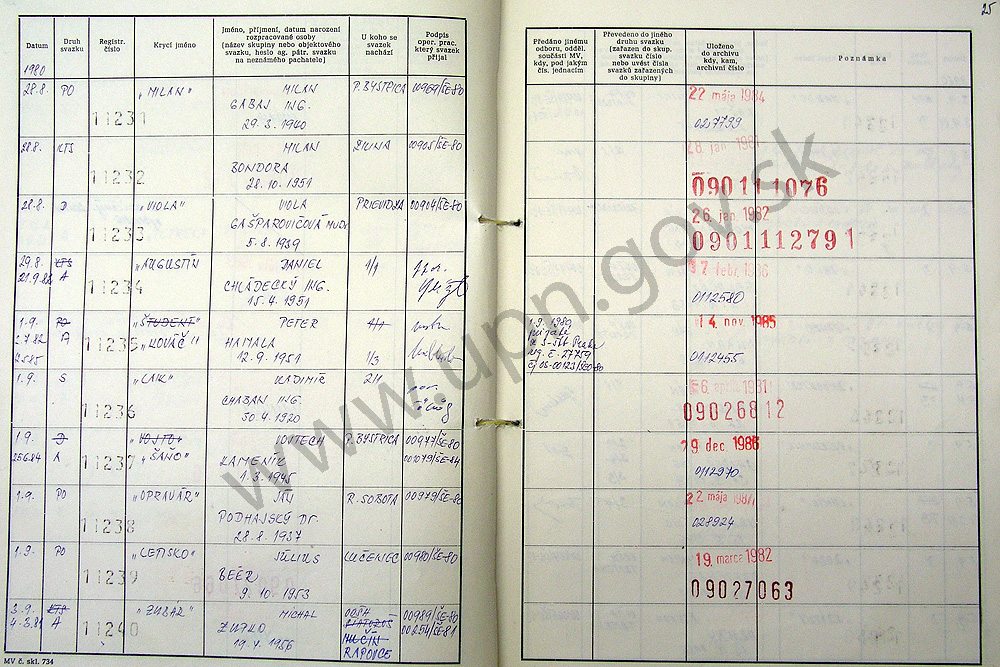 25
Datum
Druh svazku
Registr. číslo
Krycí jméno
Jméno, příjmení, datum narození rozpracované osoby (název skupiny nebo objektového svazku, heslo ag. pátr. svazku na neznámého pachatele)
U koho se svazek nachází
Podpis oper. prac. který svazek přijal
Předáno jinému odboru, odděl. součásti MV, kdy, pod jakým čís. jednacím
Převedeno do jiného druhu svazku (zařazen do skup. svazku číslo nebo uvést čísla svazků zařazených do skupiny)
Uloženo do archivu kdy, kam, archivní číslo
Poznámka
1980
28.8. PO 11231 „MILAN" MILAN P. BYSTRICA 00969/ŠE-80 22 mája 1984
GABAJ ING.
29.3.1940 027799
28.8. KTS 11232 MILAN ŽILINA 00905/ŠE-80 28. jan. 1981
BONDORA
28.10.1951 090111076
28.8. D 11233 „VIOLA" VIOLA PRIEVIDZA 00904/ŠE-80 26. jan. 1982
GAŠPAROVIČOVÁ MUDr.
5.8.1939 0901112791
29.8. KTS 11234 „AUGUSTÍN DANIEL 1/1 febr. 1986
21.9.82 A CHLÁDECKÝ ING.
15.4.1951 0112580
1.9. PO 11235 „ŠTUDENT" PETER 1/1 1.9.1989 14. nov. 1985
2.7.82 A „KOVÁČ" HAMALA
12.9.1951 1/3 0112455
1.9. S 11236 „LAIK" VLADIMÍR 2/1 1981
CHABAN ING.
30.4.1920 09026812
1.9. D 11237 „VOJTO" VOJTECH P. BYSTRICA 00977/ŠE-80 29 dec. 1986
25.6.84 A „ŠAŇO" KAMENÍK 001079/ŠE-84
1.3.1945 0112970
1.9. PO 11238 „OPRAVÁR" JÁN R. SOBOTA 00979/ŠE-80 22. mája
PODHAJSKÝ Dr.
28.8.1937 028924
1.9. PO 11239 „LETISKO" JÚLIUS LUČENEC 00980/ŠE-80 19. marca 1982
BEER
9.10.1953 09027063
3.9. KTS 11240 „ZUBAR" MICHAL 00989/ŠE-80
4.3.81 A ZUPKO 00254/ŠE-81
19.4.1956 RAPOVCE
MV č. skl. 734
www.upn.gov.sk